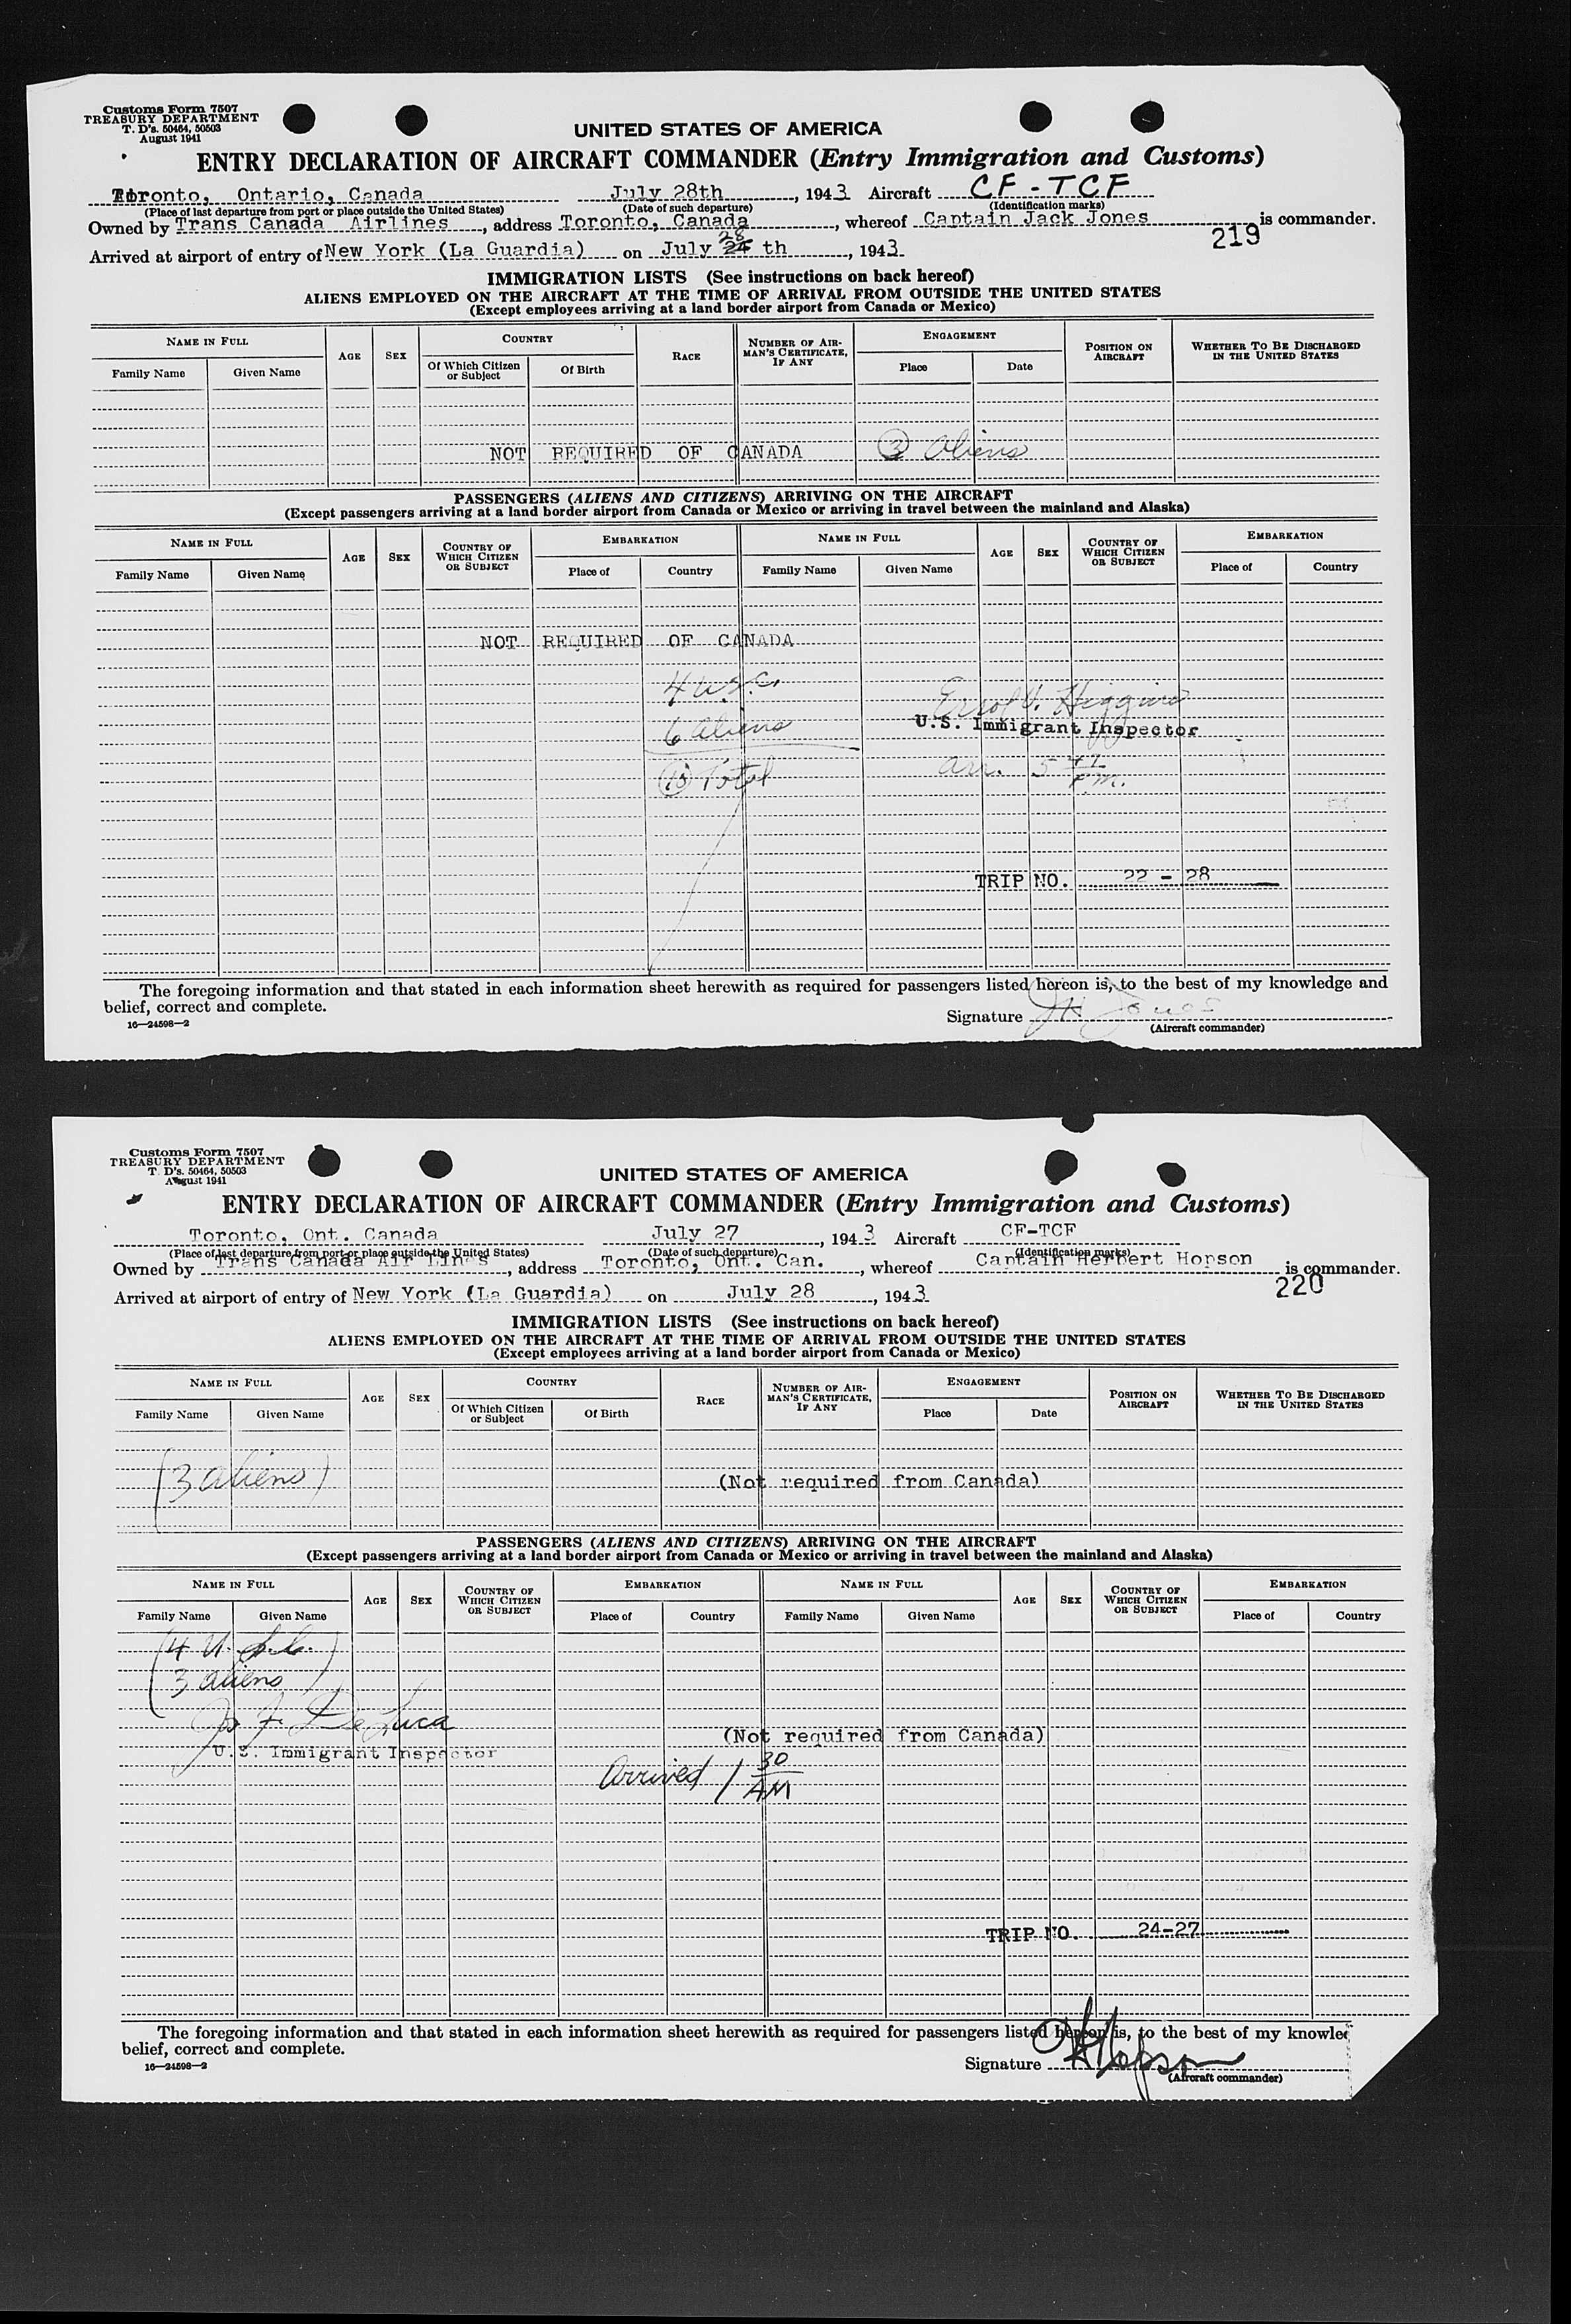 Customs Form 7507
TREASURY DEPARTMENT
T. D's. 50464, 50503
August 1941
UNITED STATES OF AMERICA
ENTRY DECLARATION OF AIRCRAFT COMMANDER (Entry Immigration and Customs)
Toronto, Ontario, Canada July 28th, 1943 Aircraft CF-TCF
(Place of last departure from port or place outside the United States) (Date of such departure) (Identification marks)
Owned by Trans Canada Airlines, address Toronto, Canada, whereof Captain Jack Jones is commander.
219
Arrived at airport of entry of New York (La Guardia) on July 28 th, 1943
IMMIGRATION LISTS (See instructions on back hereof)
ALIENS EMPLOYED ON THE AIRCRAFT AT THE TIME OF ARRIVAL FROM OUTSIDE THE UNITED STATES
(Except employees arriving at a land border airport from Canada or Mexico)
NAME IN FULL AGE SEX COUNTRY RACE NUMBER OF AIRMAN'S CERTIFICATE, IF ANY ENGAGEMENT POSITION ON AIRCRAFT WHETHER TO BE DISCHARGED IN THE UNITED STATES
Family Name Given Name Of Which Citizen or Subject Of Birth Place Date
NOT REQUIRED OF CANADA 3 Aliens
PASSENGERS (ALIENS AND CITIZENS) ARRIVING ON THE AIRCRAFT
(Except passengers arriving at a land border airport from Canada or Mexico or arriving in travel between the mainland and Alaska)
NAME IN FULL AGE SEX COUNTRY OF WHICH CITIZEN OR SUBJECT EMBARKATION NAME IN FULL AGE SEX COUNTRY OF WHICH CITIZEN OR SUBJECT EMBARKATION
Family Name Given Name Place of Country Family Name Given Name Place of Country
NOT REQUIRED OF CANADA
4 U.S.C.
Errol V. Higgins
6 aliens U.S. Immigrant Inspector
10 Total arr. 5 47 P.M.
TRIP NO. 22 - 28
The foregoing information and that stated in each information sheet herewith as required for passengers listed hereon is, to the best of my knowledge and
belief, correct and complete.
Signature Jones
16—24598—2 (Aircraft commander)
Customs Form 7507
TREASURY DEPARTMENT
T. D's. 50464, 50503
August 1941
UNITED STATES OF AMERICA
ENTRY DECLARATION OF AIRCRAFT COMMANDER (Entry Immigration and Customs)
Toronto, Ont. Canada July 27, 1943 Aircraft CF-TCF
(Place of last departure from port or place outside the United States) (Date of such departure) (Identification marks)
Owned by Trans Canada Air Lines, address Toronto, Ont. Can., whereof Captain Herbert Hopson is commander.
220
Arrived at airport of entry of New York (La Guardia) on July 28, 1943
IMMIGRATION LISTS (See instructions on back hereof)
ALIENS EMPLOYED ON THE AIRCRAFT AT THE TIME OF ARRIVAL FROM OUTSIDE THE UNITED STATES
(Except employees arriving at a land border airport from Canada or Mexico)
NAME IN FULL AGE SEX COUNTRY RACE NUMBER OF AIRMAN'S CERTIFICATE, IF ANY ENGAGEMENT POSITION ON AIRCRAFT WHETHER TO BE DISCHARGED IN THE UNITED STATES
Family Name Given Name Of Which Citizen or Subject Of Birth Place Date
(3 aliens) (Not required from Canada)
PASSENGERS (ALIENS AND CITIZENS) ARRIVING ON THE AIRCRAFT
(Except passengers arriving at a land border airport from Canada or Mexico or arriving in travel between the mainland and Alaska)
NAME IN FULL AGE SEX COUNTRY OF WHICH CITIZEN OR SUBJECT EMBARKATION NAME IN FULL AGE SEX COUNTRY OF WHICH CITIZEN OR SUBJECT EMBARKATION
Family Name Given Name Place of Country Family Name Given Name Place of Country
(4 U.S.C.
3 aliens)
De Luca
(Not required from Canada)
U.S. Immigrant Inspector
Arrived 1 30 AM
TRIP NO. 24-27
The foregoing information and that stated in each information sheet herewith as required for passengers listed hereon is, to the best of my knowled
belief, correct and complete.
Signature Hopson
16—24598—2 (Aircraft commander)